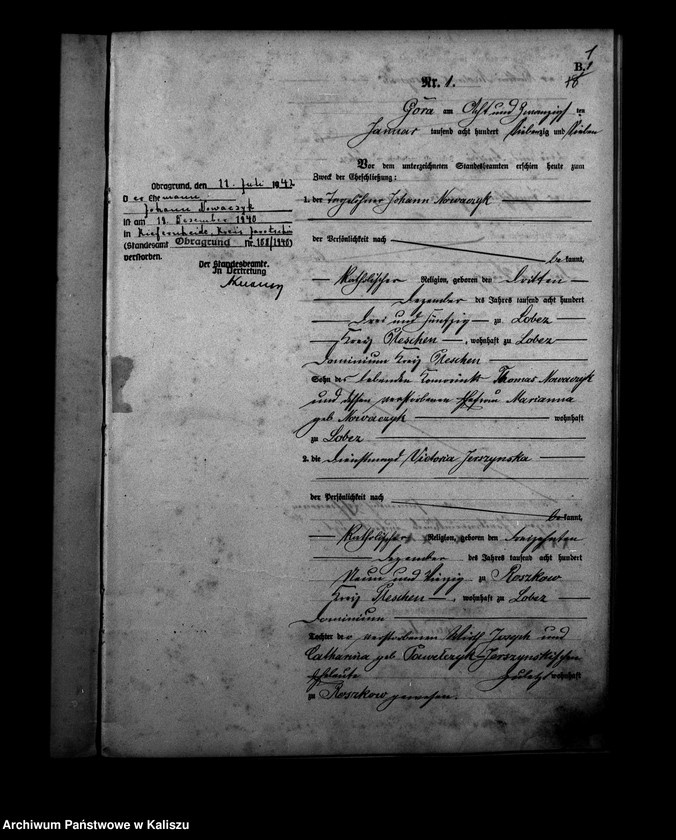 1
B.
Nr. 1.
Góra am Acht und Zwanzigsten
Januar tausend acht hundert Siebenzig und Sieben
Vor dem unterzeichneten Standesbeamten erschien heute zum
Zweck der Eheschließung:
1. der Tagelöhner Johann Nowaczyk
der Persönlichkeit nach
be kannt,
Katholischer Religion, geboren den Dritten
Dezember des Jahres tausend acht hundert
Drei und fünfzig zu Lobez
Kreis Pleschen, wohnhaft zu Lobez
Dominium Kreis Pleschen
Sohn des lebenden Komorniks Thomas Nowaczyk
und dessen verstorbenen Ehefrau Marianna
geb Nowaczyk wohnhaft
zu Lobez
2. die Dienstmagd Victoria Jerszynska
der Persönlichkeit nach
be kannt,
Katholischer Religion, geboren den Dreizehnten
Dezember des Jahres tausend acht hundert
Neun und Vierzig zu Roszkow
Kreis Pleschen, wohnhaft zu Lobez
Dominium
Tochter der verstorbenen Joseph und
Catharina geb Pawelczyk Jerszynskischen
Eheleute zuletzt wohnhaft
zu Roszkow gewesen.
Obragrund, den 11. Juli 1942
Der Ehemann
Johann Nowaczyk
ist am 19. Dezember 1940
in Kiefernheide, Kreis Jarotschin
(Standesamt Obragrund Nr. 108/1940)
verstorben.
Der Standesbeamte.
In Vertretung
Archiwum Państwowe w Kaliszu